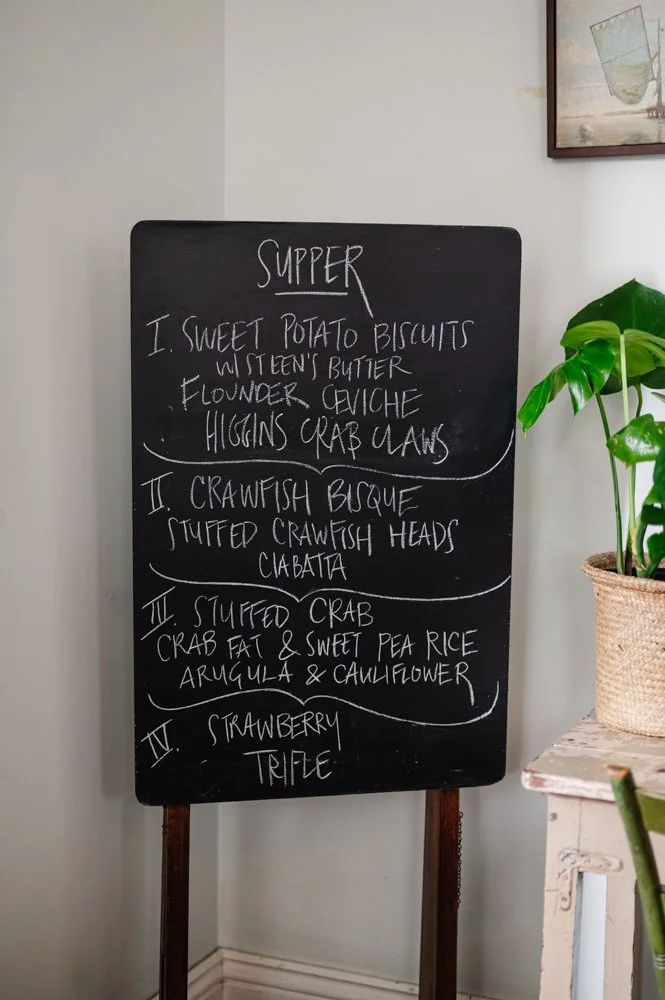 SUPPER
I. SWEET POTATO BISCUITS
W/ STEEN'S BUTTER
FLOUNDER CEVICHE
HIGGINS CRAB CLAWS
II. CRAWFISH BISQUE
STUFFED CRAWFISH HEADS
CIABATTA
III. STUFFED CRAB
CRAB FAT & SWEET PEA RICE
ARUGULA & CAULIFLOWER
IV. STRAWBERRY
TRIFLE